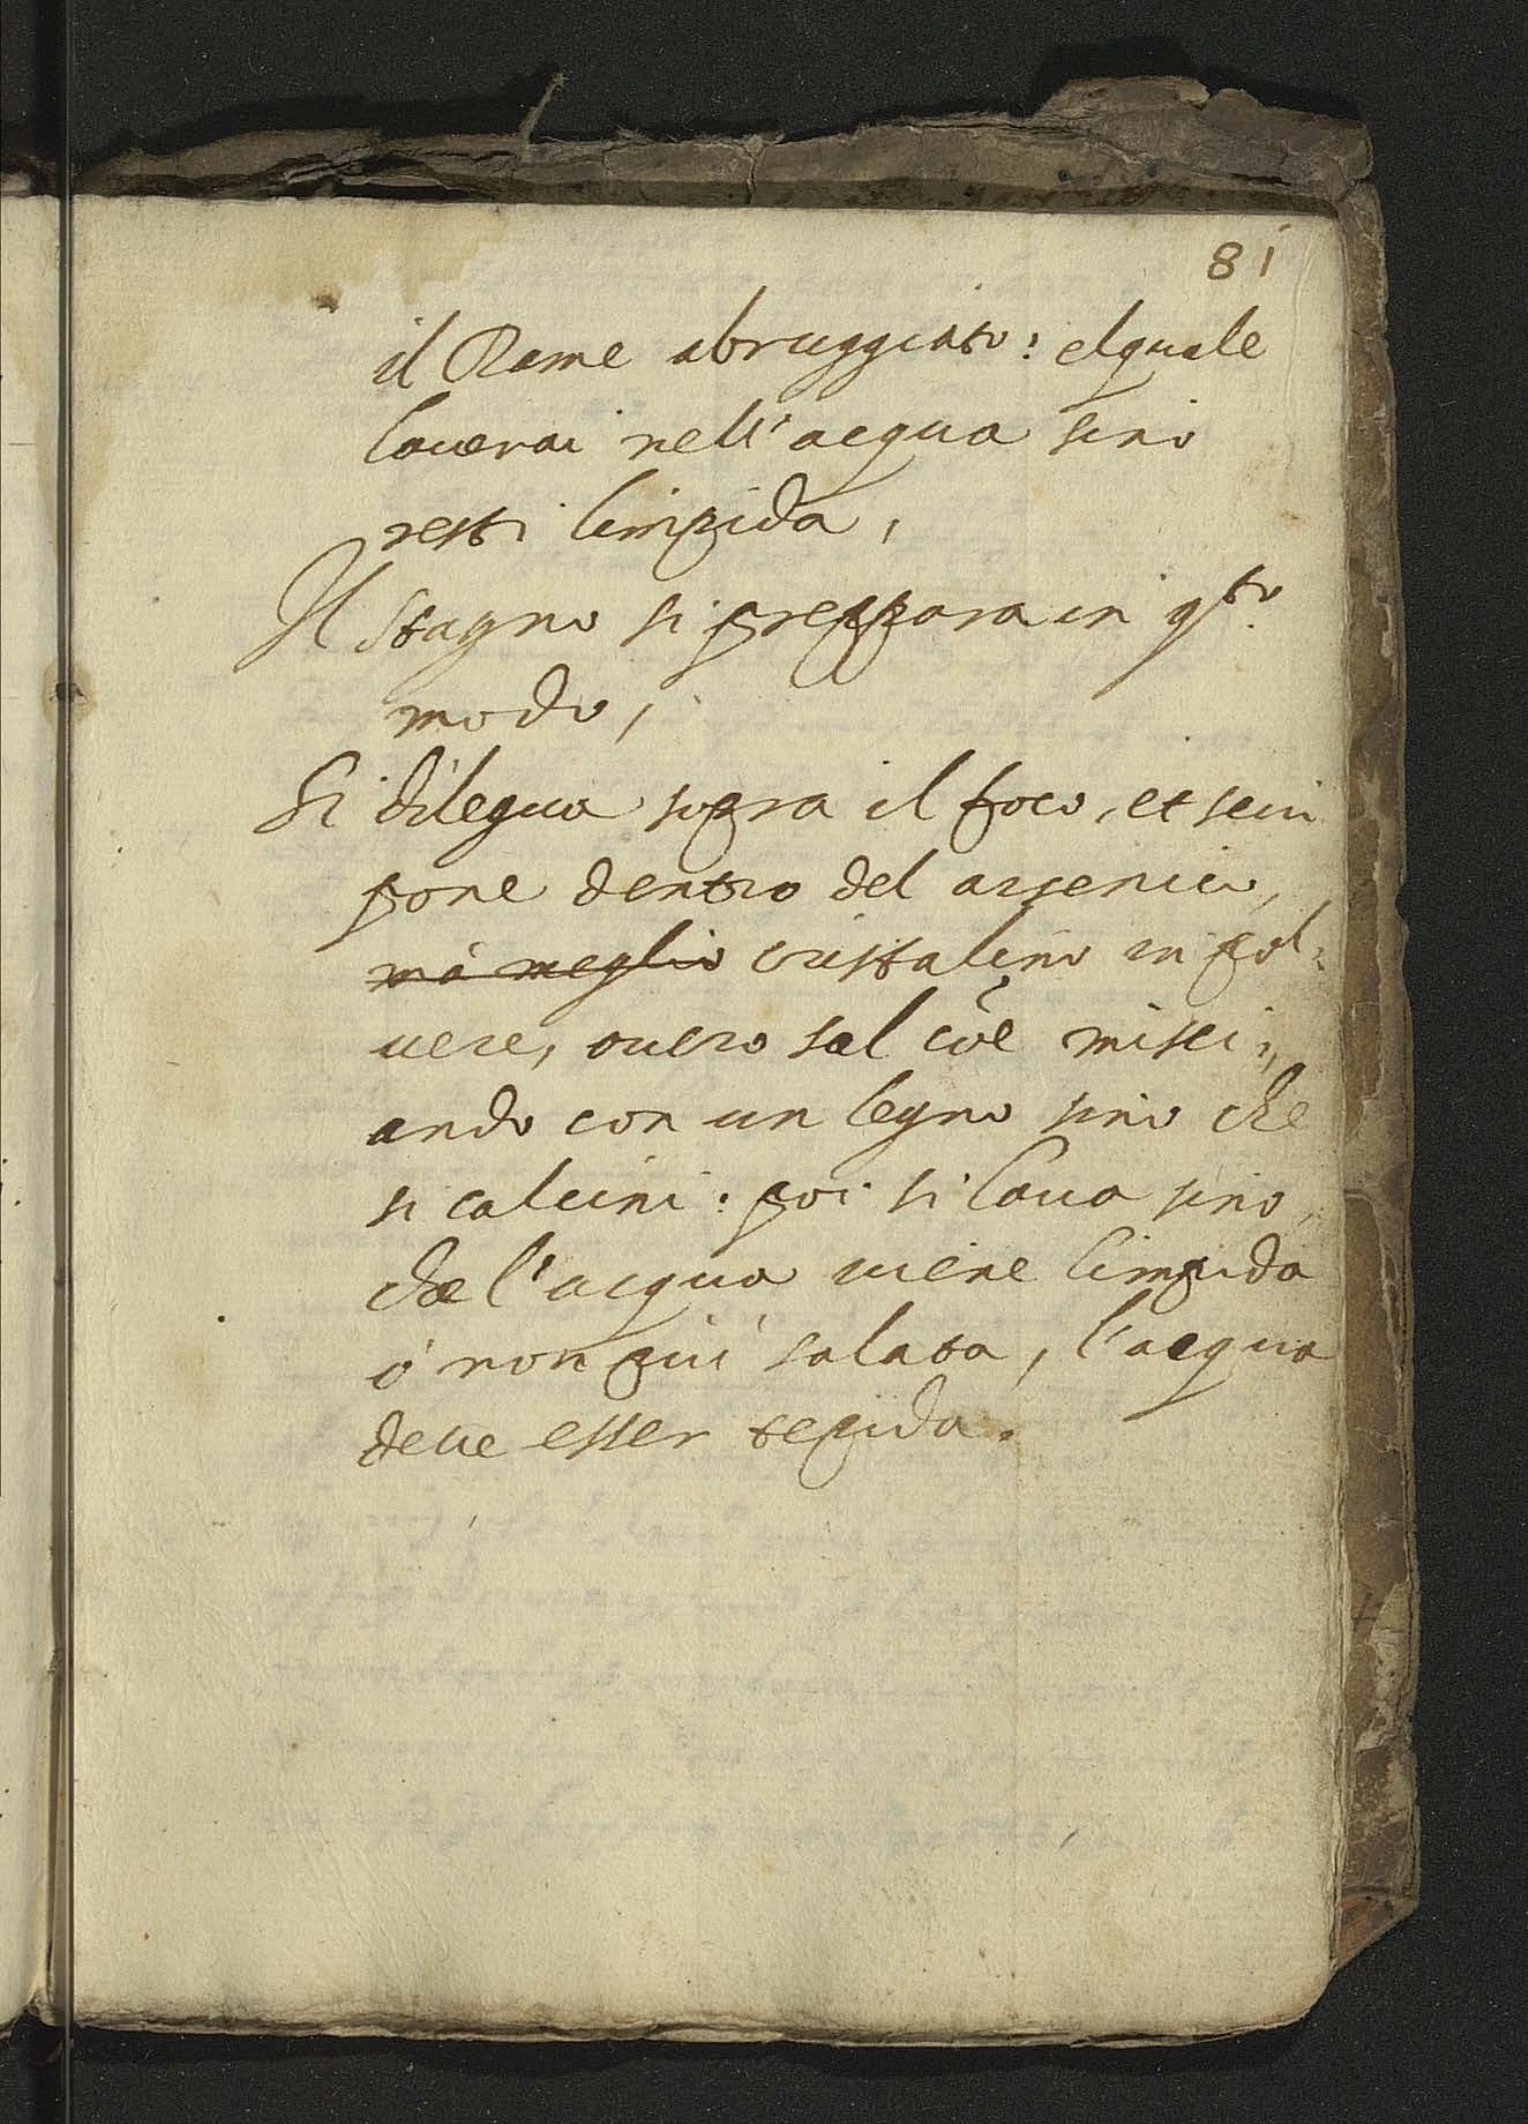 81
il Rame abruggiato: elquale
lauerai nell'acqua sino
resti limpida,
Il stagno si preppara in q.to
modo,
Si dilegua sopra il foco, et seui
pone dentro del arsenico,
mà meglio cristalino in pol:
uere, ouero sal cõe misci:
ando con un legno sino che
si calcini: poi si laua sino
che l'acqua uiene limpida
ò non più salata, l'acqua
deue esser tepida.